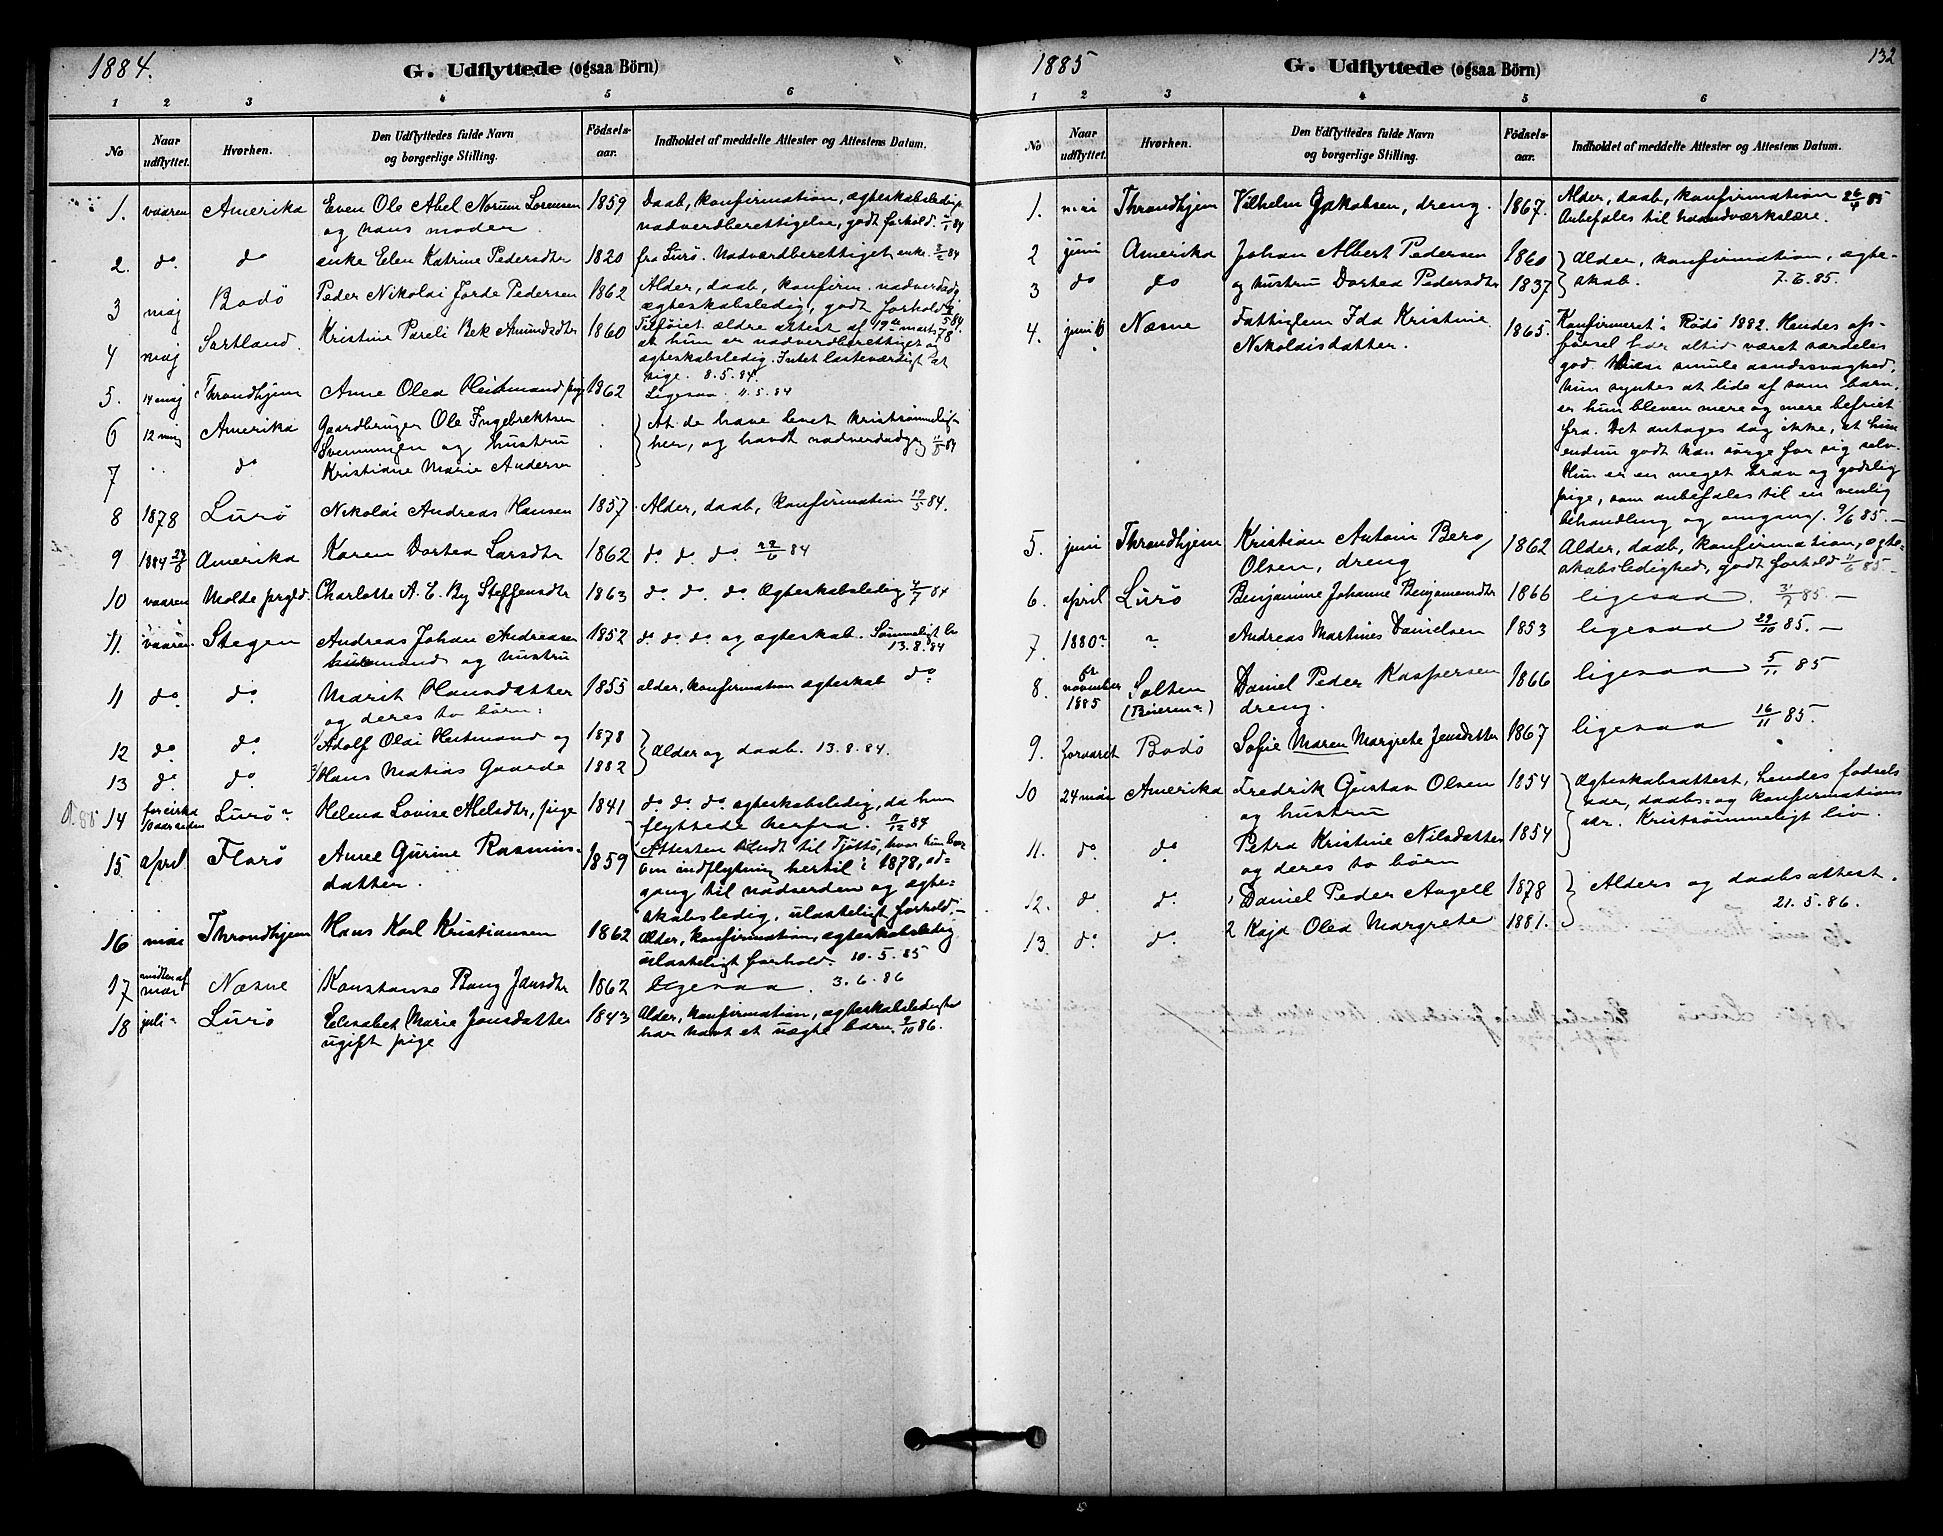 1884.
G. Udflyttede (ogsaa Börn)
1 2 3 4 5 6
No
Naar udflyttet.
Hvorhen.
Den Udflyttedes fulde Navn og borgerlige Stilling.
Födsels-aar.
Indholdet af meddelte Attester og Attestens Datum.
1. vaaren Amerika Even Ole Abel Norum Sorensen 1859 Daab, konfirmation, ægteskabsledig,
og hans moder. nadverdberettigelse, godt forhold.
2. do do enke Elen Katrine Pedersdtr 1820 fra Lurö. Nadverdberettiget enke.
3 maj Bodö Peder Nikolai Jorde Pedersen 1862 Alder, daab, konfirm. nadverdadg
ægteskabsledig, godt forhold
4 maj Sortland. Kristine Pareli Bek Amundsdtr 1860 Tilföiet ældre attest af 19de marts 78
at hun er nadverdberettiget og
ægteskabsledig. Intet lastværdigt at
sige. 8.5.84.
5. 14 maj Throndhjem Anne Olea Heitmand pige 1862 Ligesaa. 11.5.84
6 12 maj Amerika Gaardbruger Ole Ingebrektsen At de have levet kristsömmelig
Svenningen og hustru her, og havdt nadverdadg. 11/5 84
7 do Kristiane Marie Anders
8 1878 Lurö Nikolai Andreas Hansen 1857 Alder, daab, konfirmation 19/5 84.
9 1884 Amerika Karen Dortea Larsdtr 1862 do. do. do. 22/6 84
10 vaaren Molde prgld. Charlotte A. E. By Steffensdtr 1863 do. do. do. Ægteskabsledig 4/7 84
11. vaaren. Stegen Andreas Johan Andreasen 1852 do do do og ægteskab. Sömmeligt
husmand og hustru 13.8.84
11 do. do. Marit Hansdatter 1855 alder, konfirmation ægteskab do.
og deres to börn:
12 do. do. 1) Adolf Olai Heitmand og 1878 Alder og daab. 13.8.84.
13 do. do. Hans Matias Gaarde 1882
14 for cirka 10 aar siden Lurö Helena Lovise Abelsdtr, pige 1841 do. do. do. ægteskabsledig, da hun
flyttede herfra. 11/12 84
15 april Florö Anne Gurine Rasmus- 1859 Attesten til Tjöttö, hvor hun
datter. om indflytning hertil i 1878, ad-
gang til nadverden og ægte-
skabsledig, ulasteligt forhold.
16 mai Throndhjem Hans Karl Kristiansen 1862 Alder, konfirmation, ægteskabsledig
ulasteligt forhold. 10.5.85
17 midten af mai Næsne Konstanse Bang Jansdtr 1862 ligesaa. 3.6.86
18 juli Lurö Elisabet Marie Jonsdatter 1843 Alder, konfirmation, ægteskabsledighed
ugift pige har havt et uægte barn. 9/10 86.
1885
G. Udflyttede (ogsaa Börn)
132
1 2 3 4 5 6
No
Naar udflyttet.
Hvorhen.
Den Udflyttedes fulde Navn og borgerlige Stilling.
Födsels-aar.
Indholdet af meddelte Attester og Attestens Datum.
1. mai Throndhjem Vilhelm Jakobsen, dreng. 1867. Alder, daab, konfirmation 26/4 85
Anbefales til haandværkslære.
2 juni Amerika Johan Albert Pedersen 1860 Alder, konfirmation, ægte-
3 do do og hustru Dortea Pedersdtr 1837 skab. 7.6.85.
4. juni Næsne Fattiglem Ida Kristine 1865. Konfirmeret i Rödö 1882. Hendes op-
Nikolaisdatter. försel har altid været særdeles
god. smule aandssvaghed,
hun syntes at lide af som barn,
er hun bleven mere og mere befriet
fra. Det antages dog ikke, at hun
endnu godt kan sörge for sig selv.
Hun er en meget brav og godslig
pige, som anbefales til en venlig
behandling og omgang. 9/6 85.
5. juni Throndhjem Kristian Antoni Berg 1862 Alder, daab, konfirmation, ægte-
Olsen, dreng skabsledighed, godt forhold 11/6 85
6. april Lurö Benjamine Johanne Benjamindtr 1866 ligesaa. 31/7 85.
7. 1880 " Andreas Martines Danielsen 1853 ligesaa 29/10 85.
8. november 1885 Salten (Beieren) Daniel Peder Kaspersen dreng. 1866 ligesaa 5/11 85
9. forvaret Bodö Sofie Maren Margrete Jensdatter 1867 ligesaa 16/11 85.
10 24 mai Amerika Fredrik Gustav Olsen 1854 Ægteskabsattest, hendes födsels
og hustru aar, daabs- og konfirmations
11. do. do. Petra Kristine Nilsdatter 1854 aar. Kristsömmeligt liv.
og deres to börn
12. do. do. 1 Daniel Peder Angell 1878 Alders og daabsattest.
13 do. do. 2 Kaja Olea Margrete 1881. 21.5.86.